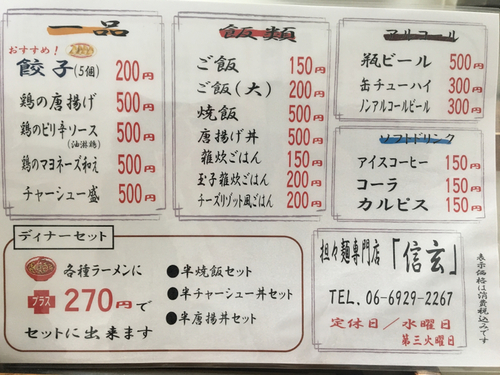 一品
おすすめ!
餃子(5個) 200円
鶏の唐揚げ 500円
鶏のピリ辛ソース 500円
(油淋鶏)
鶏のマヨネーズ和え 500円
チャーシュー盛 500円
飯類
ご飯 150円
ご飯(大) 200円
焼飯 500円
唐揚げ丼 500円
雑炊ごはん 150円
玉子雑炊ごはん 200円
チーズリゾット風ごはん 200円
アルコール
瓶ビール 500円
缶チューハイ 300円
ノンアルコールビール 300円
ソフトドリンク
アイスコーヒー 150円
コーラ 150円
カルピス 150円
ディナーセット
各種ラーメンに
プラス 270円で
セットに出来ます
●半焼飯セット
●半チャーシュー丼セット
●半唐揚丼セット
担々麺専門店「信玄」
TEL. 06-6929-2267
定休日/水曜日
第三火曜日
表示価格は消費税込みです